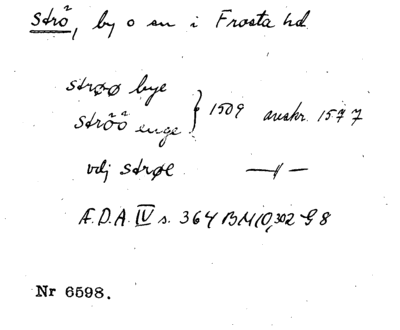 Strö, by o sn i Frosta hd
strøø bye
ströö enge } 1509 avskr. 1577
vdj strøe —"—
Æ.D.A. IV s. 364 BM 10,302 G 8
Nr 6598.